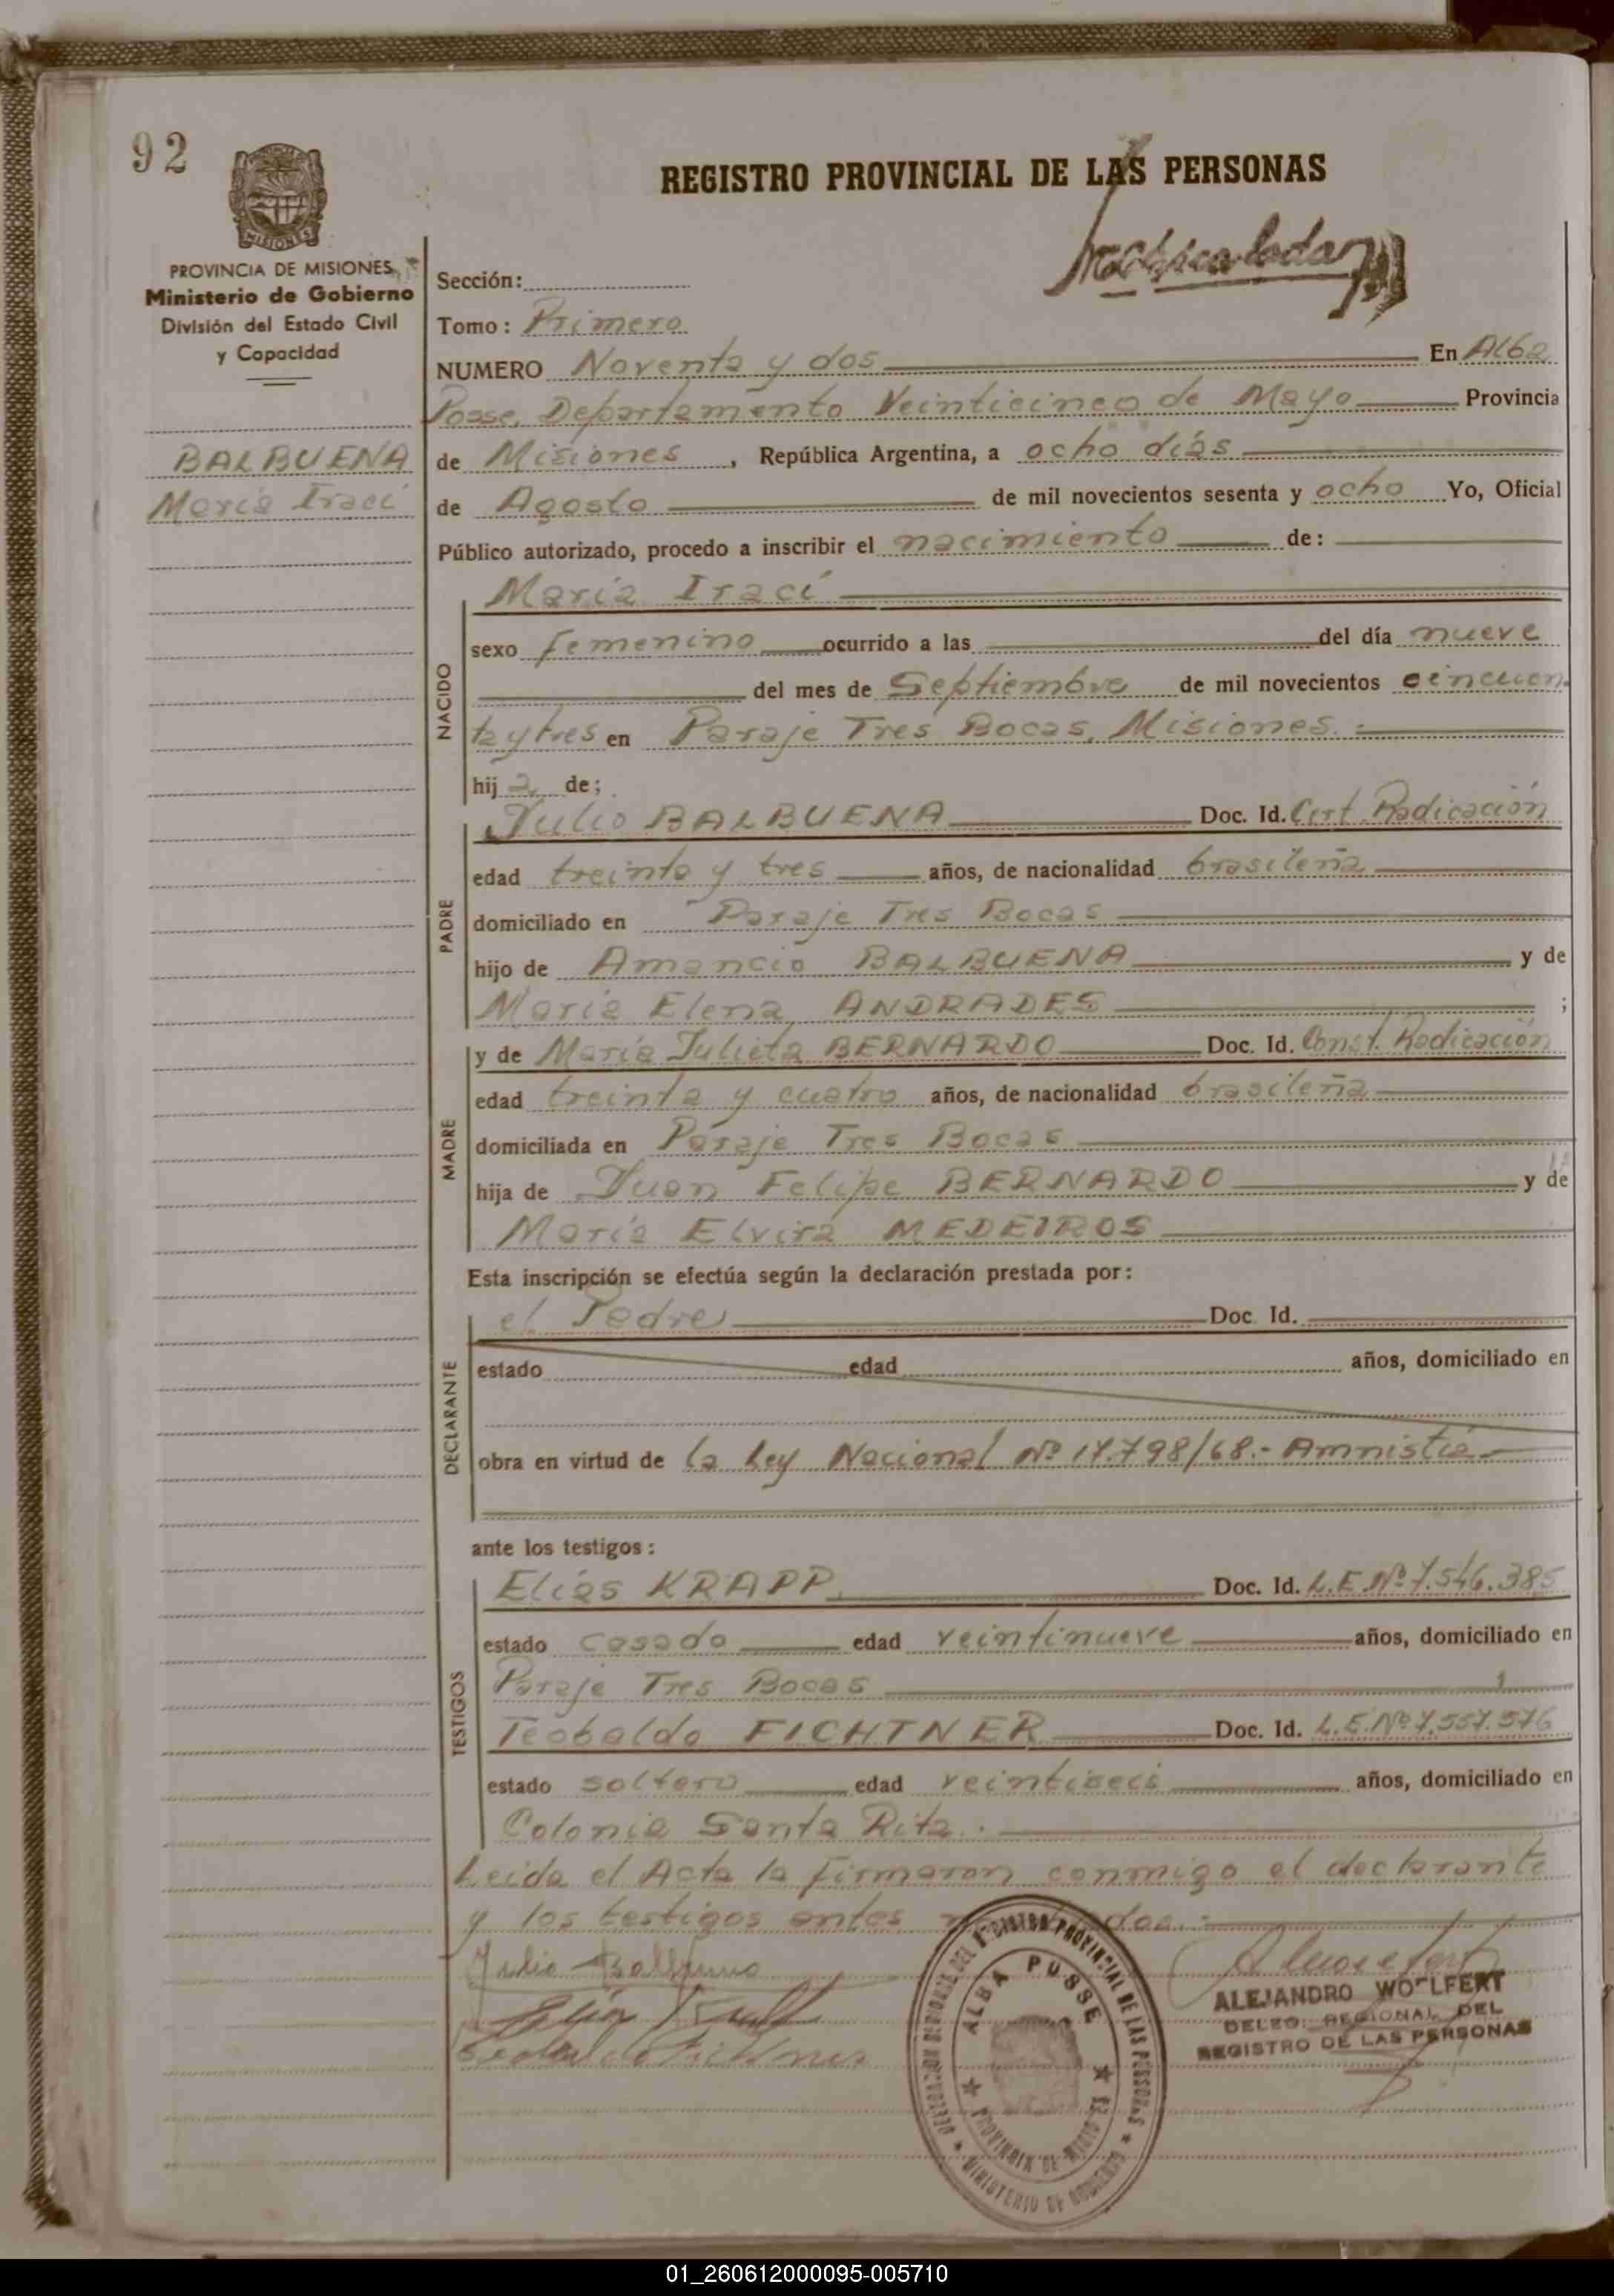 92
MISIONES
REGISTRO PROVINCIAL DE LAS PERSONAS
PROVINCIA DE MISIONES
Ministerio de Gobierno
División del Estado Civil
y Capacidad
BALBUENA
María Iraci
Sección:
Tomo: Primero
NUMERO Noventa y dos En Alba
Posse, Departamento Veinticinco de Mayo Provincia
de Misiones, República Argentina, a ocho días
de Agosto de mil novecientos sesenta y ocho Yo, Oficial
Público autorizado, procedo a inscribir el nacimiento de:
María Iraci
NACIDO
sexo femenino ocurrido a las del día nueve
del mes de Septiembre de mil novecientos cincuen
ta y tres en Paraje Tres Bocas, Misiones.
hija de;
PADRE
Julio BALBUENA Doc. Id. Cert. Radicación
edad treinta y tres años, de nacionalidad brasileña
domiciliado en Paraje Tres Bocas
hijo de Amancio BALBUENA y de
María Elena ANDRADES ;
MADRE
y de María Julieta BERNARDO Doc. Id. Const. Radicación
edad treinta y cuatro años, de nacionalidad brasileña
domiciliada en Paraje Tres Bocas
hija de Juan Felipe BERNARDO y de
María Elvira MEDEIROS
Esta inscripción se efectúa según la declaración prestada por:
DECLARANTE
el Padre Doc. Id.
estado edad años, domiciliado en
obra en virtud de la Ley Nacional Nº 17.798/68.- Amnistía.-
ante los testigos:
TESTIGOS
Elías KRAPP Doc. Id. L.E. Nº 7.546.385
estado casado edad veintinueve años, domiciliado en
Paraje Tres Bocas
Teobaldo FICHTNER Doc. Id. L.E. Nº 7.557.576
estado soltero edad veintiseis años, domiciliado en
Colonia Santa Rita.
Leida el Acta la firmaron conmigo el declarante
y los testigos antes
Julio Balbuena
ALEJANDRO WOLFERT
DELEG. REGIONAL DEL
REGISTRO DE LAS PERSONAS
DEL REGISTRO PROVINCIAL DE LAS PERSONAS
MINISTERIO DE GOBIERNO
ALBA POSSE
PROVINCIA DE MISIONES
01_260612000095-005710